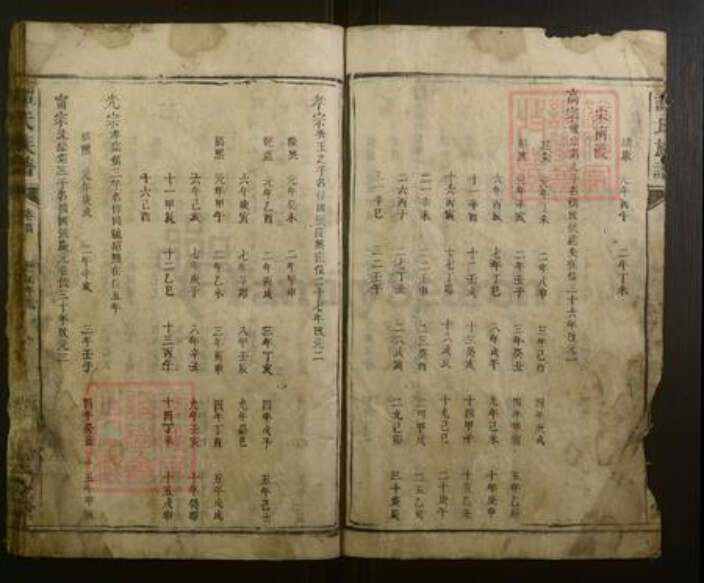 靖康 元年丙午 二年丁未
宋南渡
高宗
建炎 元年丁未 二年戊申 三年己酉 四年庚戌
紹興 元年辛亥 二年壬子 三年癸丑 四年甲寅 五年乙卯
六年丙辰 七年丁巳 八年戊午 九年己未 十年庚申
十一辛酉 十二壬戌 十三癸亥 十四甲子 十五乙丑
十六丙寅 十七丁卯 十八戊辰 十九己巳 二十庚午
二一辛未 二二壬申 二三癸酉 二四甲戌 二五乙亥
二六丙子 二七丁丑 二八戊寅 二九己卯 三十庚辰
三一辛巳 三二壬午
孝宗秀王之子名
隆興 元年癸未 二年甲申
乾道 元年乙酉 二年丙戌 三年丁亥 四年戊子 五年己丑
六年庚寅 七年辛卯 八年壬辰 九年癸巳
元年甲午 二年乙未 三年丙申 四年丁酉 五年戊戌
六年己亥 七年庚子 八年辛丑 九年壬寅 十年癸卯
十一甲辰 十二乙巳 十三丙午 十四丁未 十五戊申
十六己酉
光宗孝宗第三子名惇國號紹熙在位五年
紹熙 元年庚戌 二年辛亥 三年壬子 四年癸丑 五年甲寅
甯宗光宗第二子名
氏族譜
卷首